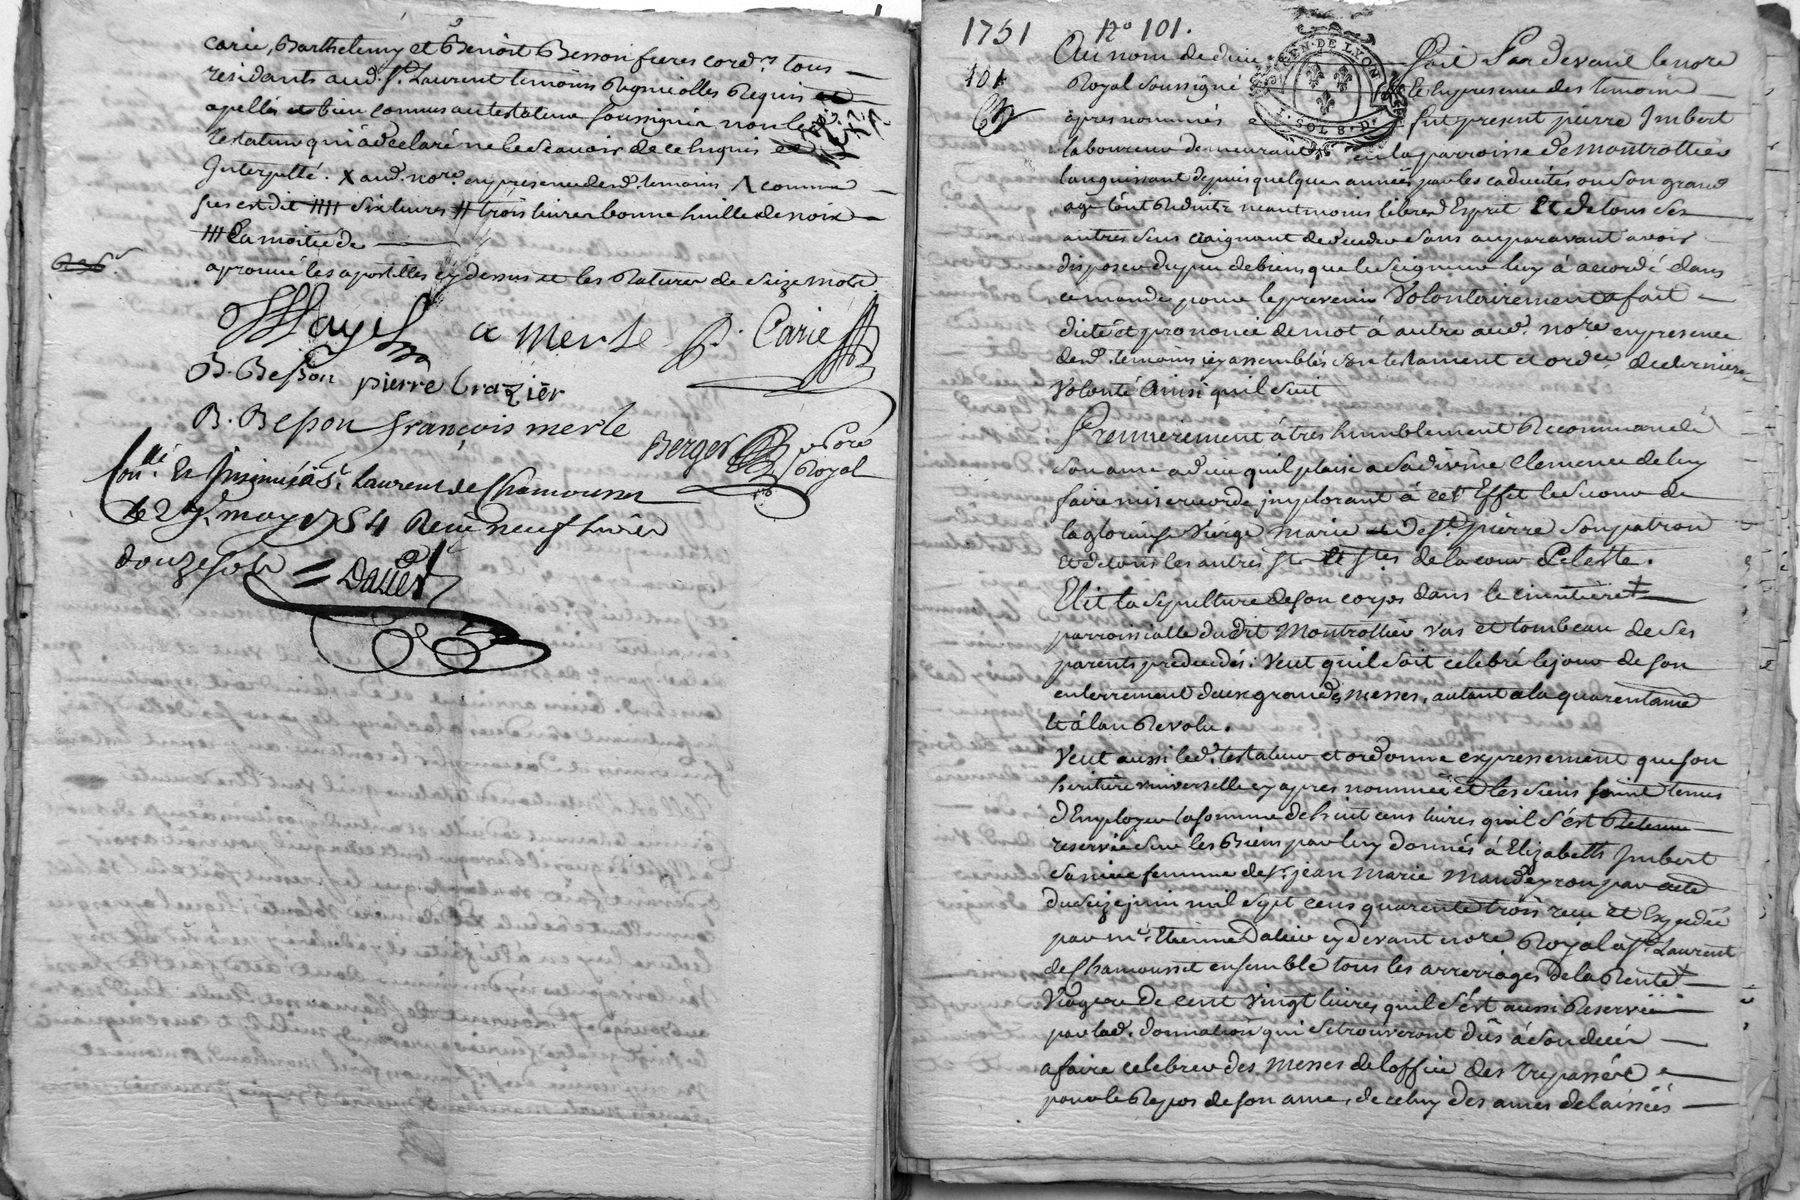 carié, Barthelemy et Benoist Besson freres cord.rs tous
residants aud. St. Laurent temoins Requis et
apellés et bien connus au testateur soussignés non le
testateur qui a declaré ne le scavoir de ce Enquis et
Interpellé. X aud. nore. en presence desd. temoins Λ comme
sus est dit //// six livres # trois livres bonne huille de noix
//// La moitié de
aprouvé les apostilles cy dessus et les Ratures de seize mots
Mayet a merle P. Carié
B. Besson pierre brazier
B. Besson françois merle Berger Nore Royal
Conllé et Insinué à St. Laurent de Chamousset
le 29 may 1754 Receu neuf livres
douze sols = Dalier
1751 no 101.
101
Au nom de dieu fait Par devant le nore
Royal soussigné Et En presence des temoins
apres nommés fut present pierre Imbert
GEN. DE LYON
I. SOL 8. D.
laboureur demeurant en la parroisse de montrottier
languissant depuis quelques années par les caducités ou son grand
age l'ont Reduit neantmoins libre d'Esprit Et de tous ses
autres sens craignant de deceder sans auparavant avoir
disposer du peu de biens que le Seigneur luy à accordé dans
ce monde pour le prevenir Volontairement a fait
dicté et prononcé de mot à autre aud. nore en presence
desd. temoins icy assemblés son testament et ordce de derniere
Volonté Ainsi quil suit
Premierement à tres humblement Recommandé
son ame a dieu quil plaise a sa divine Clemence de luy
faire misericorde, implorant à cet Effet le secours de
la glorieuse Vierge Marie et de St. pierre son patron
et de tous les autres Sts Et Stes de la cour Celeste.
Elit la sepulture de son corps dans le cimetiere +
parroissialle dudit Montrottier vas et tombeau de ses
parents predecedés. Veut quil soit celebré le jour de son
enterrement deux grandes messes, autant a la quarentaine
Et à l'an Revolu.
Veut aussi led. testateur et ordonne expressement que son
heritiere universelle cy apres nommée et les siens soint tenus
d'Employer la somme de huit cens livres quil s'est Retenue
reservée sur les Biens par luy donnés à Elizabeth Imbert
sa niece femme de Sr. jean marie mandeyron par acte
du seize juin mil sept cens quarente trois receu et Expedié
par me. Etienne Dalier cy devant nore Royal a St. Laurent
de Chamousset ensemble tous les arrerages de la Rente +
Viagere de cent vingt livres quil s'est aussi Reservéé
par lad. donnation qui se trouveront dûs à son decés
a faire celebrer des Messes de l'office des trepassés
pour le Repos de son ame, de celuy des ames delaissées